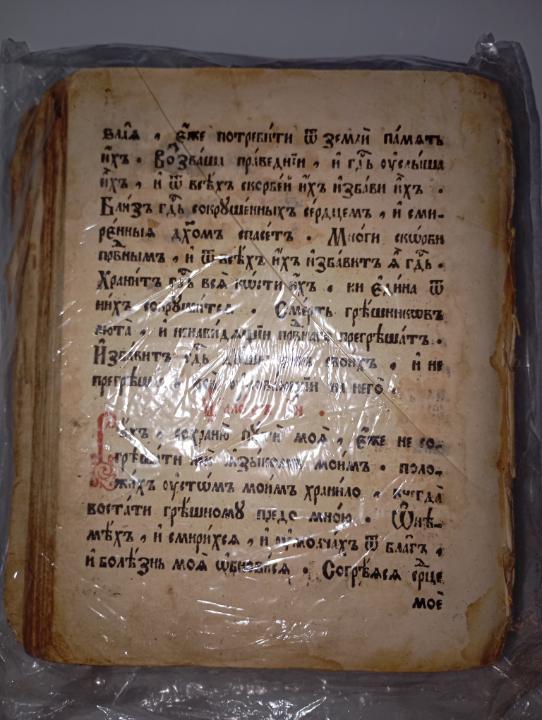 влаѧ , є́же потреби́ти ѿ земли́ па́мѧть
и́хъ . Воззва́ша пра́веднїи , и҆ гдⷭ҇ь ᲂу҆слы́ша
и҆́хъ , и҆ ѿ всѣ́хъ скорбе́й и҆́хъ и҆зба́ви и҆́хъ .
Бли́зъ гдⷭ҇ь сокруше́нныхъ се́рдцемъ , и҆ сми-
ре́нныѧ дх҃омъ спасе́тъ . Мно́ги ско́рби
пра́вⷣнымъ , и҆ ѿ всѣ́хъ и҆́хъ и҆зба́витъ ѧ҆̀ гдⷭ҇ь .
Храни́тъ гдⷭ҇ь всѧ̀ ко́сти и҆́хъ , ни є҆ди́на ѿ
ни́хъ сокруши́тсѧ . Сме́рть грѣ́шникѡвъ
люта̀ , и҆ ненави́дѧщїи првⷣнаго прегрѣша́тъ .
И҆зба́витъ гдⷭ҇ь рабъ свои́хъ , и҆ не
прегрѣша́тъ всѝ ᲂу҆пова́ющїи на него̀
Рѣ́хъ , сохраню̀ пꙋти̑ моѧ̑ , є҆́же не со-
грѣша́ти мѝ ѧ҆зы́комъ мои́мъ . поло-
жи́хъ ᲂу҆стѡ́мъ мои́мъ храни́ло , внегда̀
воста́ти грѣ́шному предо мно́ю . Ѡ҆нѣ-
мѣ́хъ , и҆ смири́хсѧ , и҆ ᲂу҆молча́хъ ѿ бла̑гъ ,
и҆ болѣ́знь моѧ̀ ѡ҆бнови́сѧ . Согрѣ́ѧсѧ срⷣце
моѐ